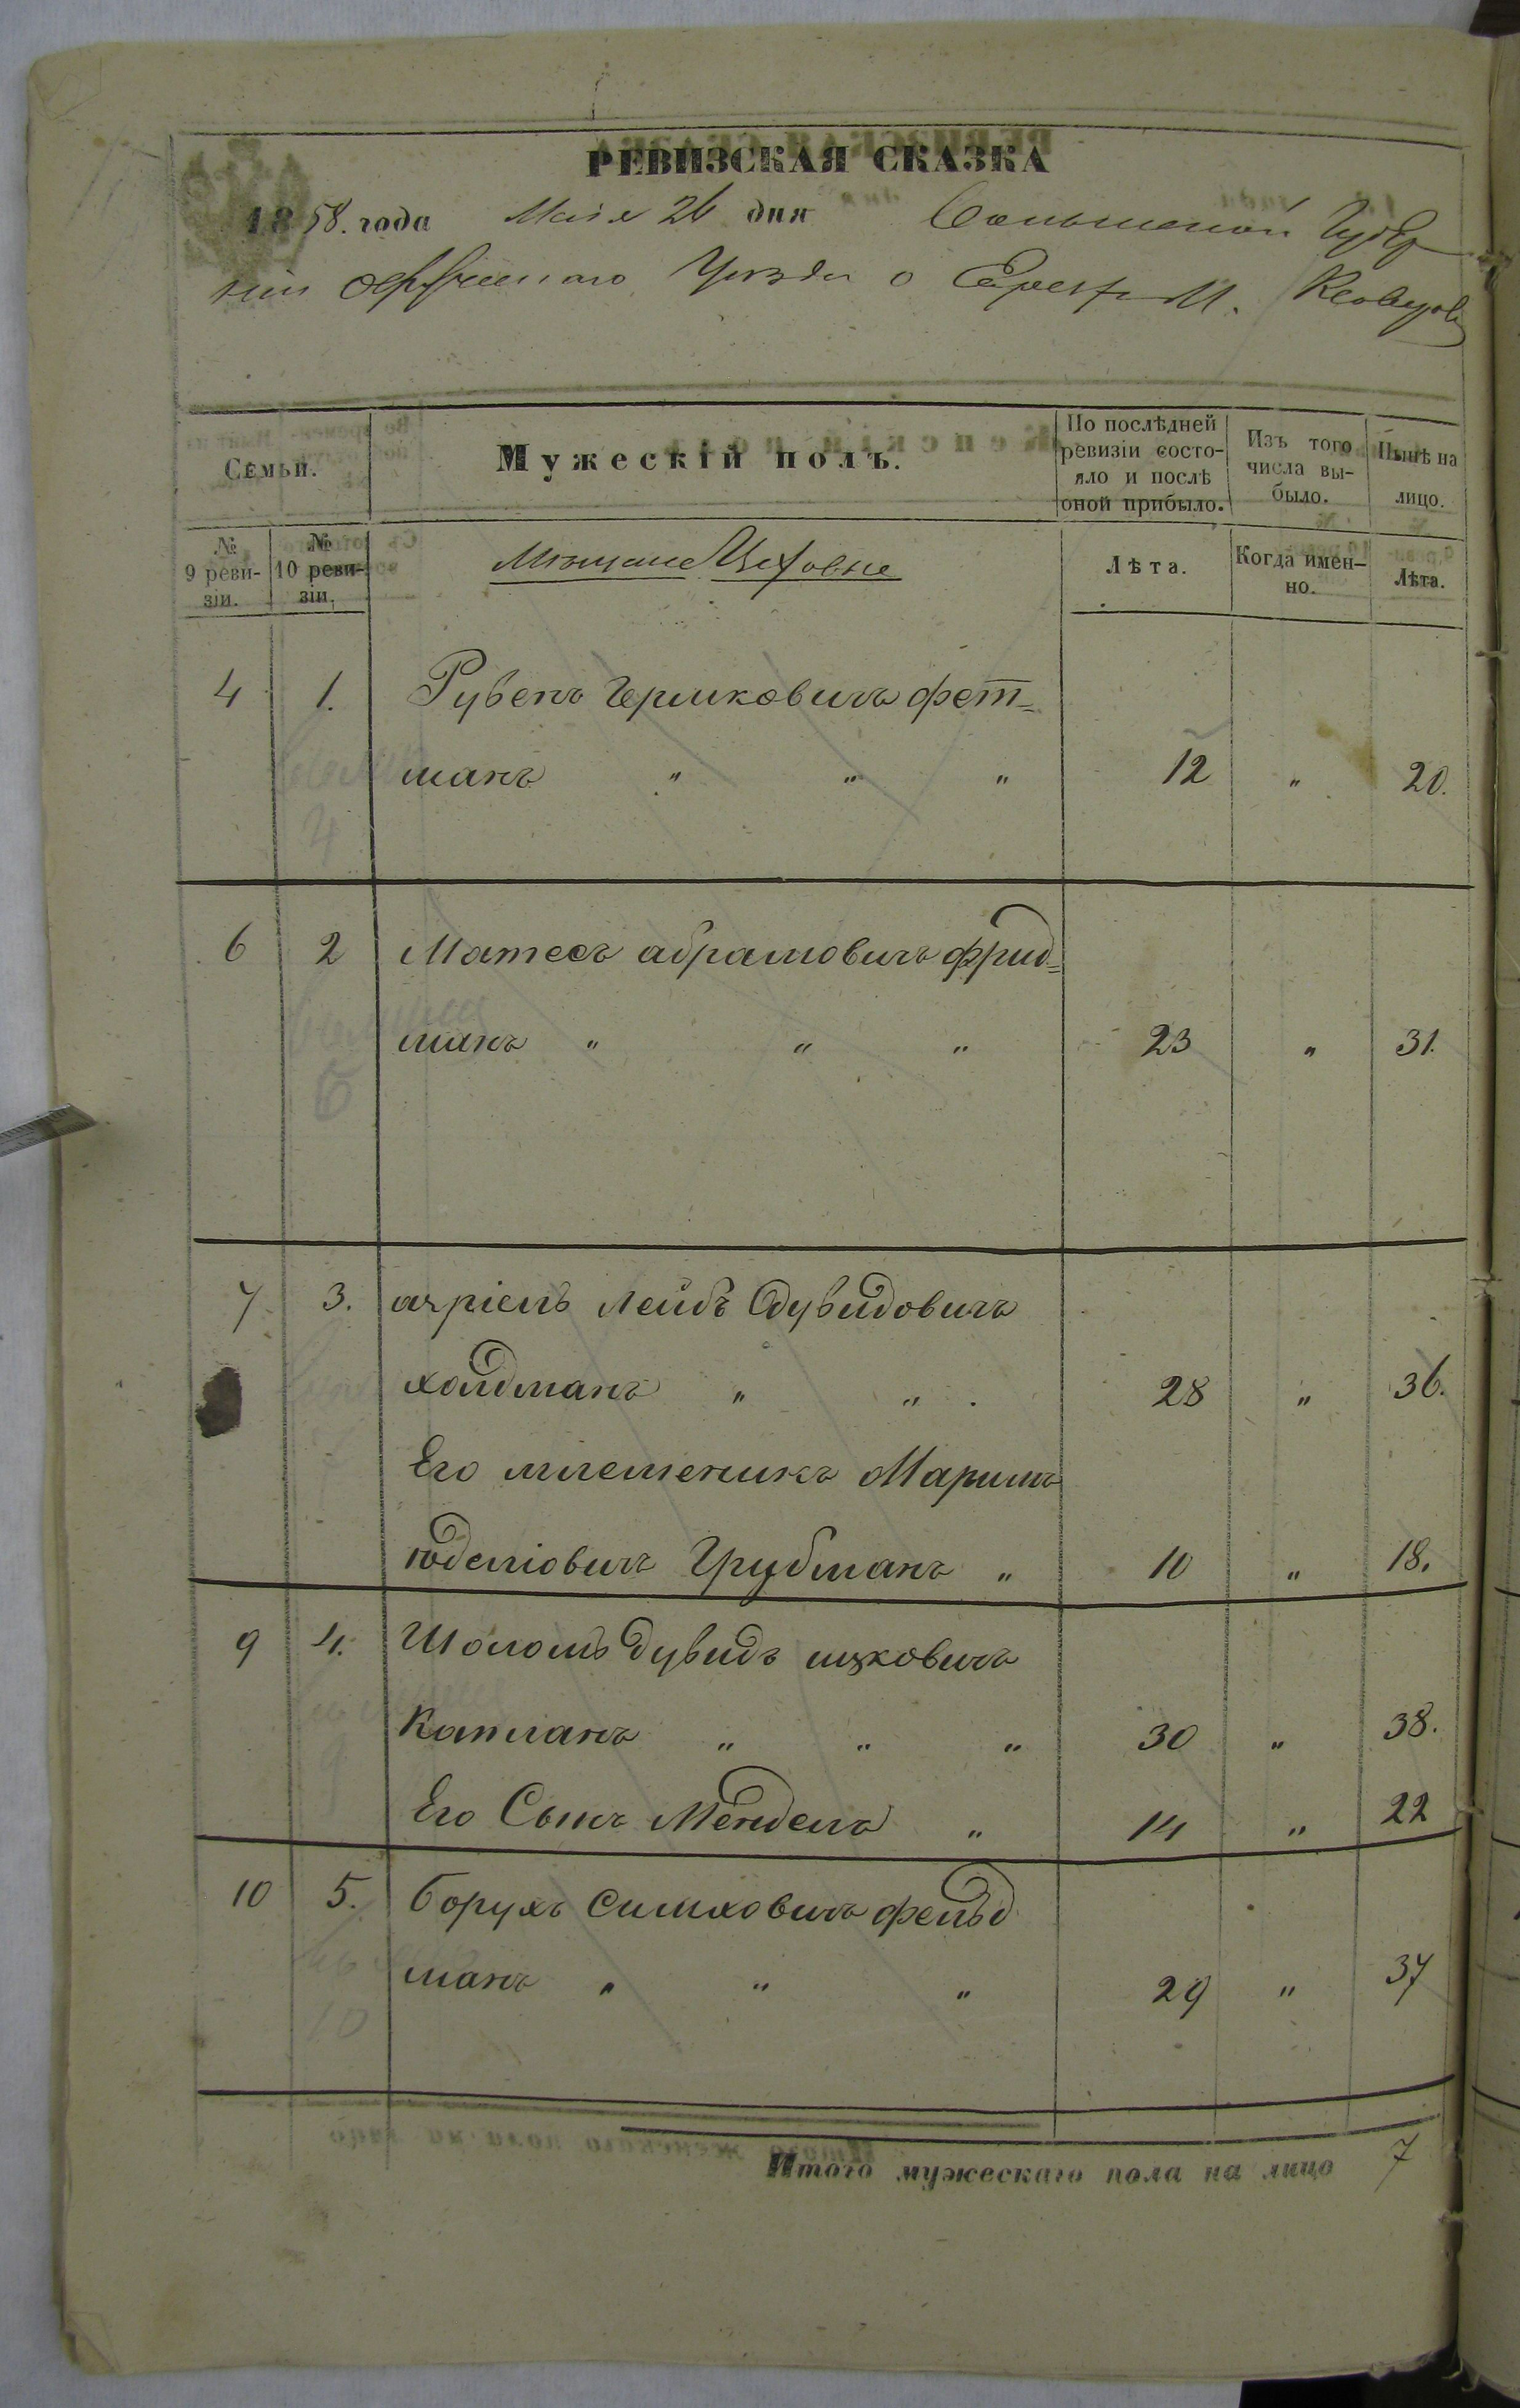 РЕВИЗСКАЯ СКАЗКА
1858. года Мая 26 дня Волынской Губер
ніи Уезда о Евреях М.
Семьи.
Мужескій полъ.
По послѣдней ревизіи состо-
яло и послѣ
оной прибыло.
Изъ того
числа вы-
было.
Нынѣ на
лицо.
№
9 реви-
зіи.
№
10 реви-
зіи.
Мѣщане Цеховые
Лѣта.
Когда имен-
но.
Лѣта.
4 1. Рувенъ Гершковичъ фет=
манъ " " " 12 " 20.
4
6 2 Матесъ абрамовичъ фрид=
манъ " " " 23 " 31.
6
7 3. азріель Лейбъ Дувидовичъ
холдманъ " " 28 " 36.
Его племеникъ
юделіовичъ Грубманъ " 10 " 18.
9 4. Шоломъ Дувидъ ицковичъ
" " " 30 " 38.
9
Его Сынъ Мендель " 14 " 22
10 5. борухъ Симховичъ фельд
манъ " " " 29 " 37
10
Итого мужескаго пола на лицо 7